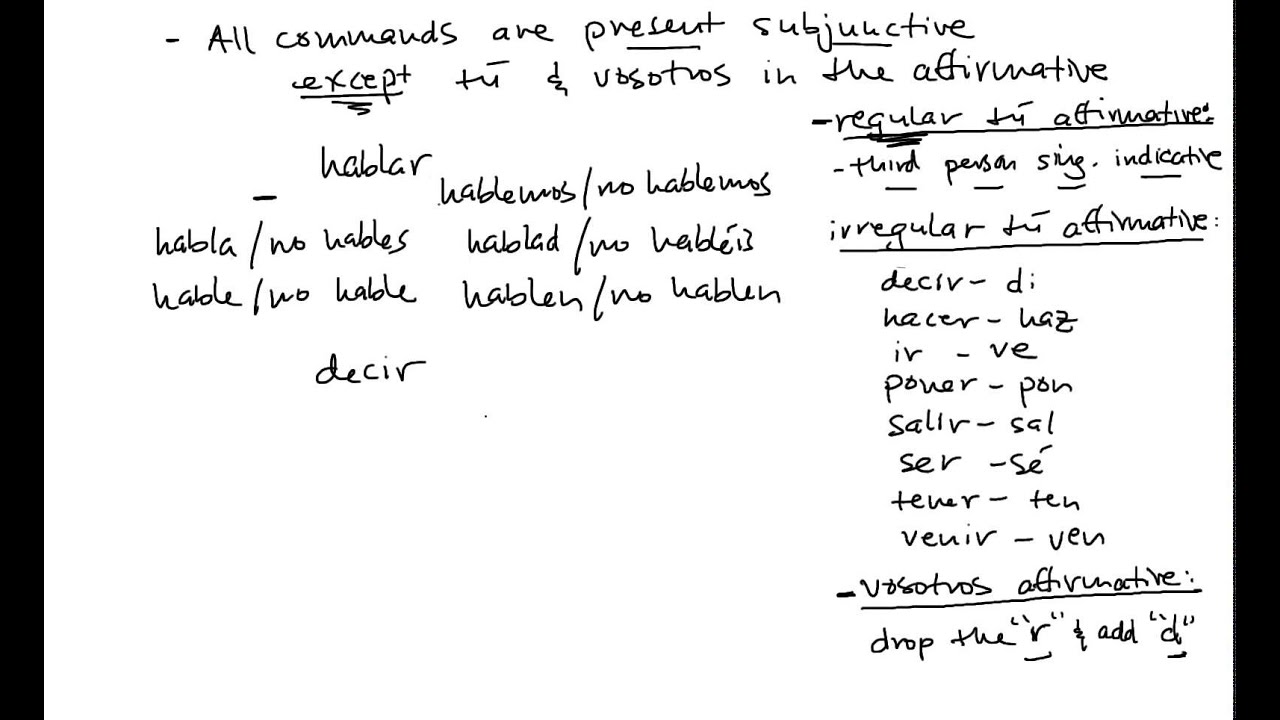 - All commands are present subjunctive
except tú & vosotros in the affirmative
hablar
- hablemos/no hablemos
habla/no hables hablad/no habléis
hable/no hable hablen/no hablen
decir
- regular tú affirmative:
- third person sing. indicative
irregular tú affirmative:
decir - di
hacer - haz
ir - ve
poner - pon
salir - sal
ser - sé
tener - ten
venir - ven
- vosotros affirmative:
drop the "r" & add "d"